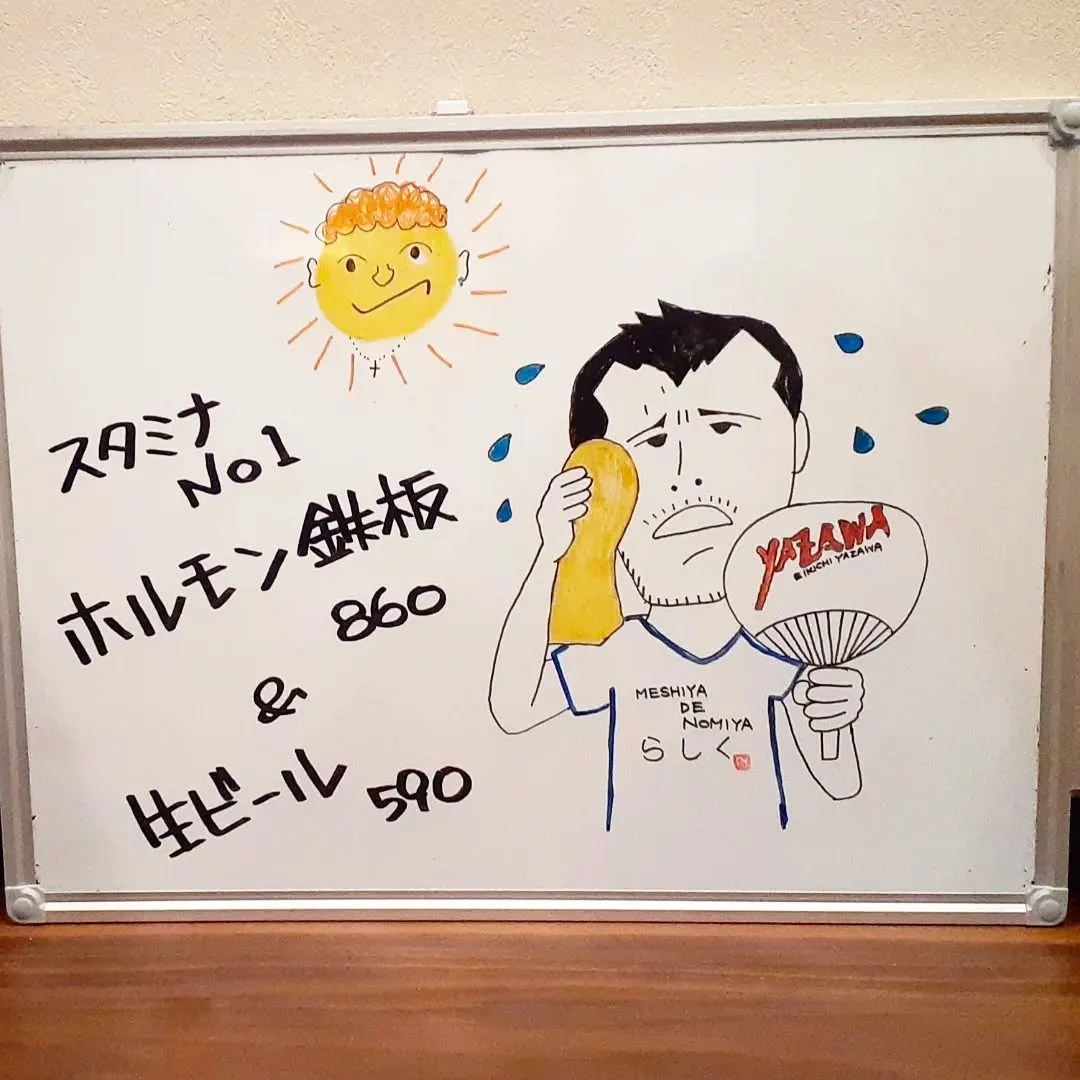 スタミナ
No1
ホルモン鉄板
860
&
生ビール 590
YAZAWA
EIKICHI YAZAWA
MESHIYA
DE
NOMIYA
らしく